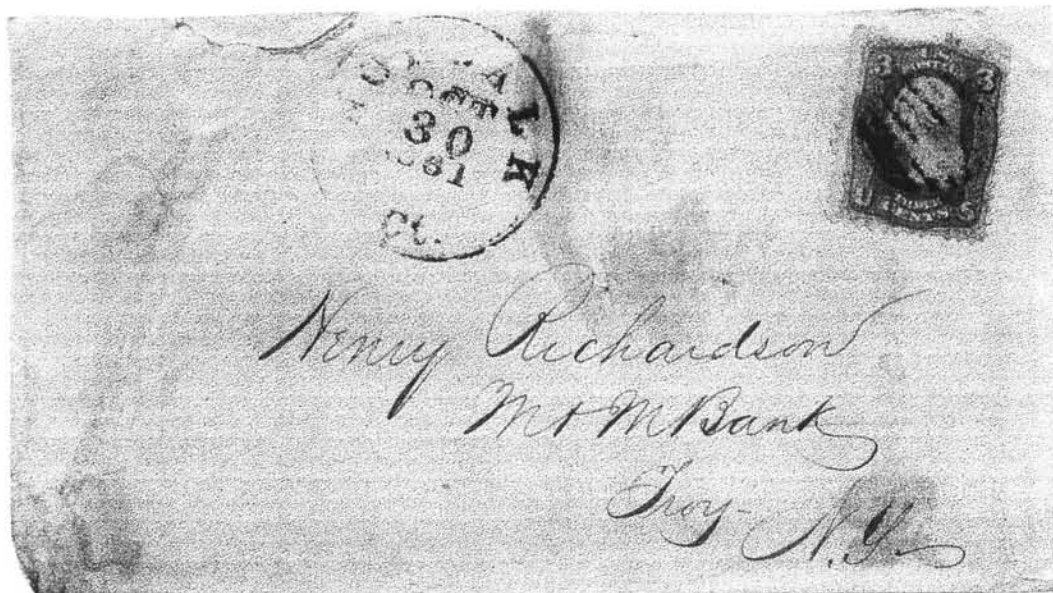 NORWALK
OCT
30
1861
Ct.
3 3
U S
CENTS
Henry Richardson
M & M Bank
Troy- N.Y.